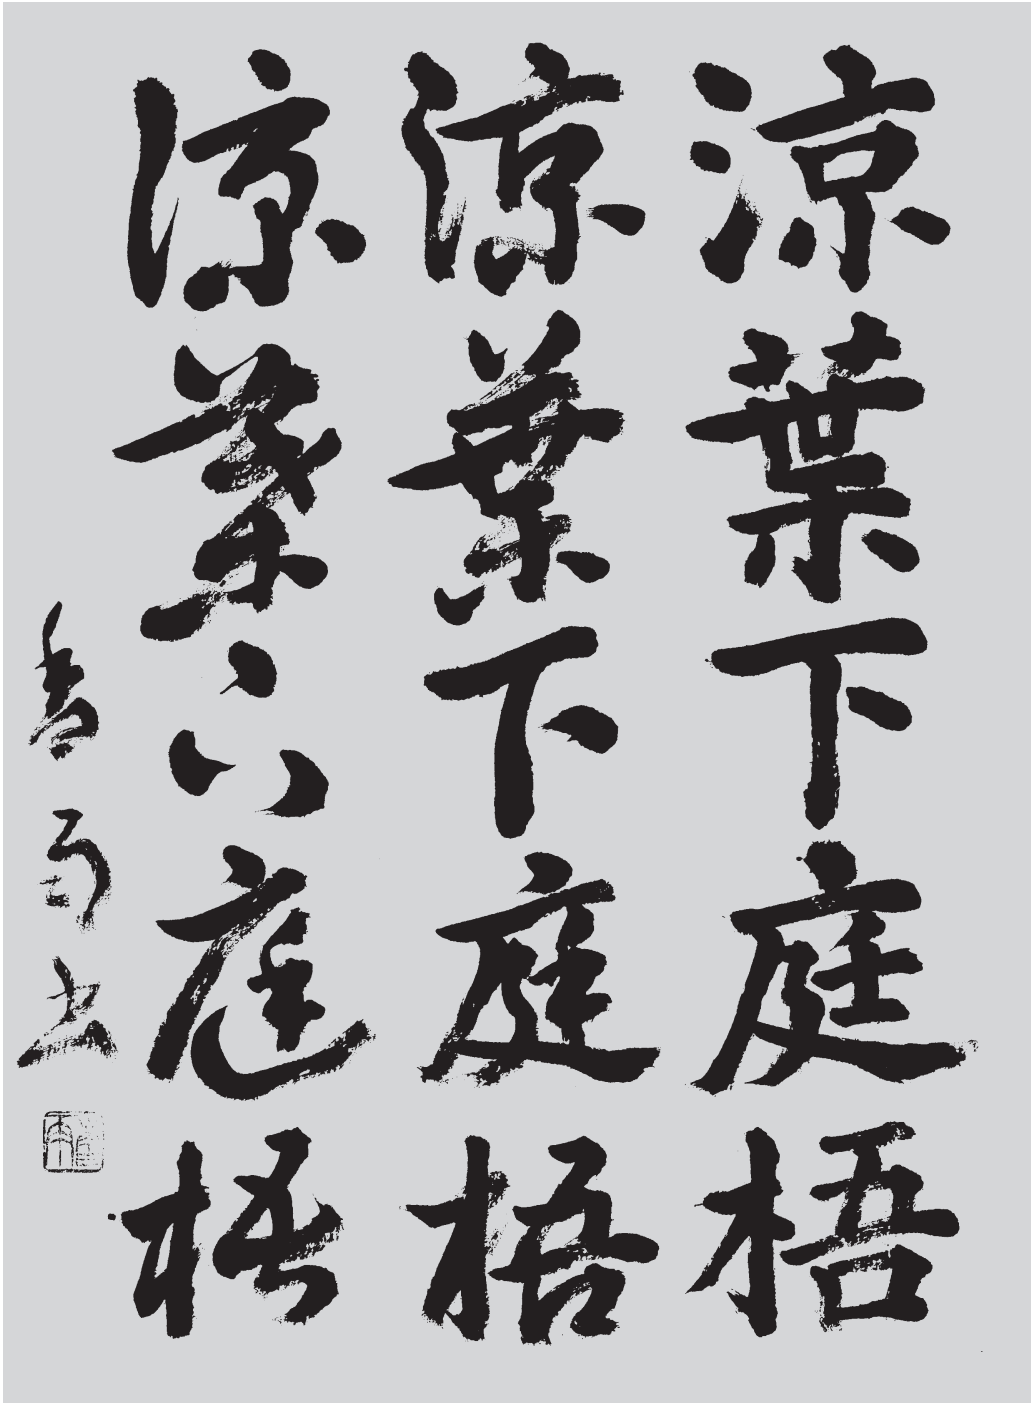 涼葉下庭梧
涼葉下庭梧
涼葉下庭梧
香雨书